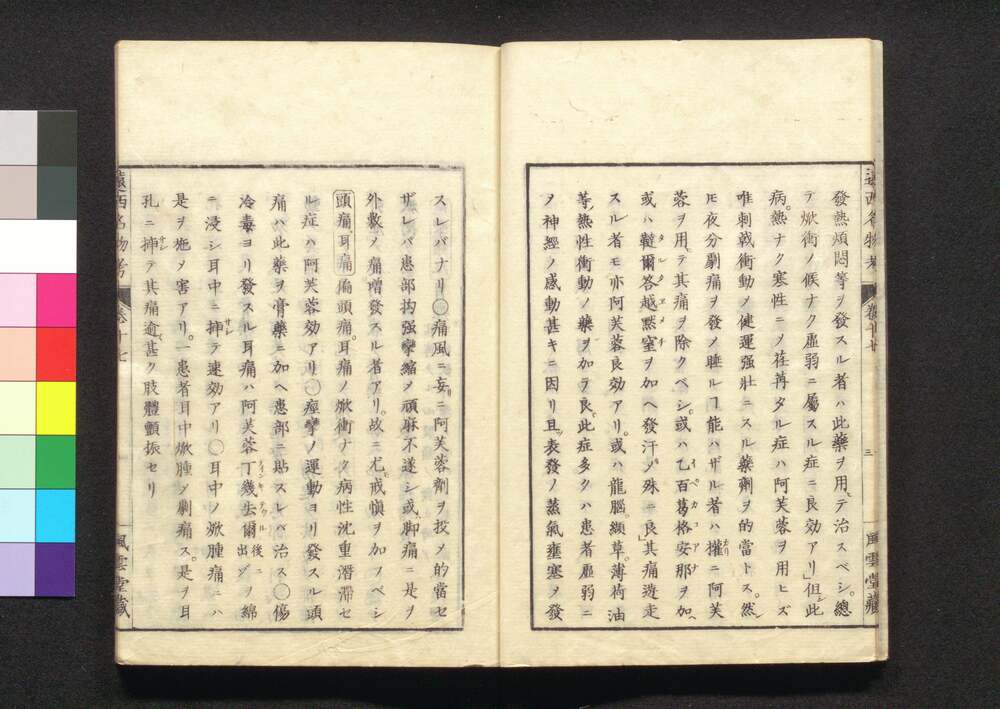 遠西名物考 卷廿七 三 風雲堂藏
發熱煩悶等ヲ發スル者ハ此藥ヲ用テ治スベシ。總
テ焮衝ノ候ナク虛弱ニ屬スル症ニ良効アリ」但此
病。熱ナク寒性ニメ荏苒タル症ハ阿芙蓉ヲ用ヒズ
唯刺戟衝動メ健運强壯ニスル藥劑ヲ的當トス。然
𪜈夜分劇痛ヲ發メ睡ルヿ能ハザル者ハ權ニ阿芙
蓉ヲ用テ其痛ヲ除クベシ。或ハ乙百葛格安那ヲ加ヘ
或ハ韃爾答越黙窒ヲ加ヘ發汗メ殊ニ良」其痛遊走
スル者モ亦阿芙蓉良効アリ。或ハ龍腦。纈草。薄荷油
等。熱性衝動ノ藥ヲ加テ良。此症多クハ患者虛弱ニ
メ神經ノ感動甚キニ因リ且。表發ノ蒸氣壅塞メ發
スレバナリ〇痛風ニ妄ニ阿芙蓉劑ヲ投メ的當セ
ザレバ患部拘强攣縮メ頑麻不遂シ或脚痛ニ是ヲ
外敷メ痛增發スル者アリ。故ニ尤戒愼ヲ加フベシ
頭痛耳痛 偏頭痛。耳痛ノ焮衝ナク病性沈重潛滯セ
ル症ハ阿芙蓉効アリ〇痙攣ノ運動ヨリ發スル頭
痛ハ此藥ヲ膏藥ニ加ヘ患部ニ貼スレバ治ス〇傷
冷毒ヨリ發スル耳痛ハ阿芙蓉丁幾去爾後ニ出ヅヲ綿
ニ浸シ耳中ニ揷テ速効アリ〇耳中ノ焮腫痛ニハ
是ヲ施メ害アリ。一患者耳中焮腫メ劇痛ス。是ヲ耳
孔ニ揷テ其痛逾甚ク肢體顫振セリ
遠西名物考 卷廿七 風雲堂藏